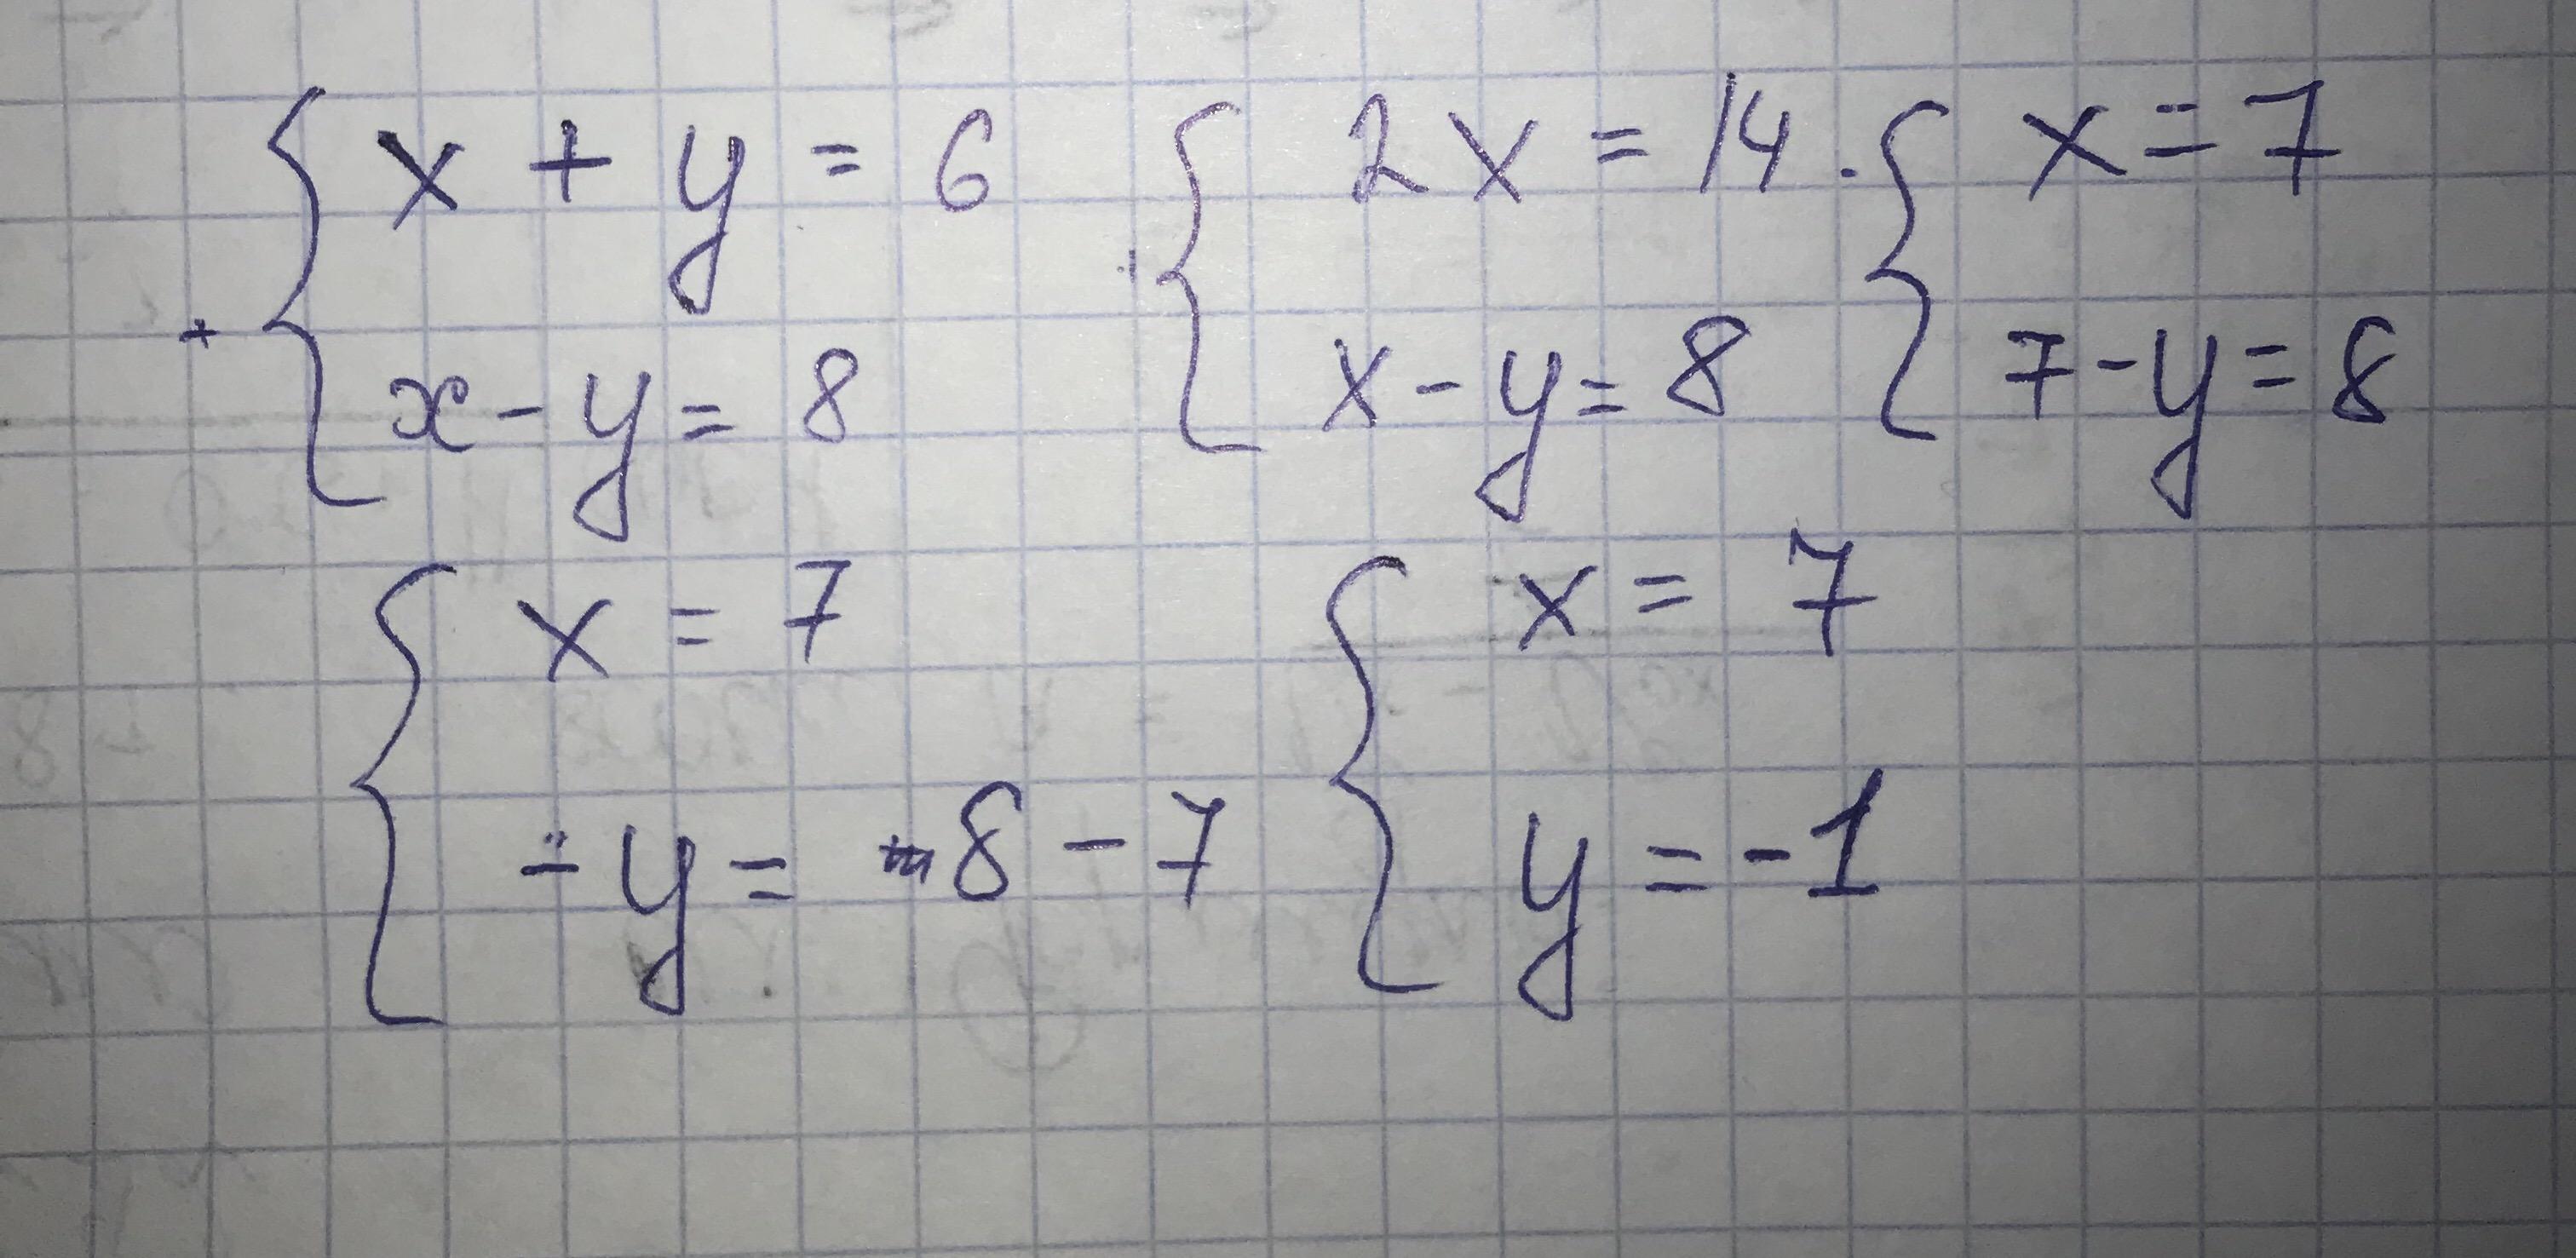 x + y = 6
+
x - y = 8
2x = 14
x - y = 8
x = 7
7 - y = 8
x = 7
- y = 8 - 7
x = 7
y = -1